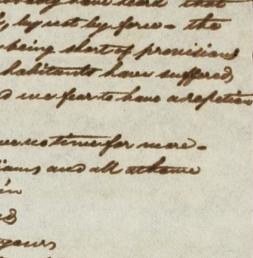 have heard that
by not by force - the
being short of provisions
habitants have suffered
we fear to have a repetion
no time for more -
and all at home
yours